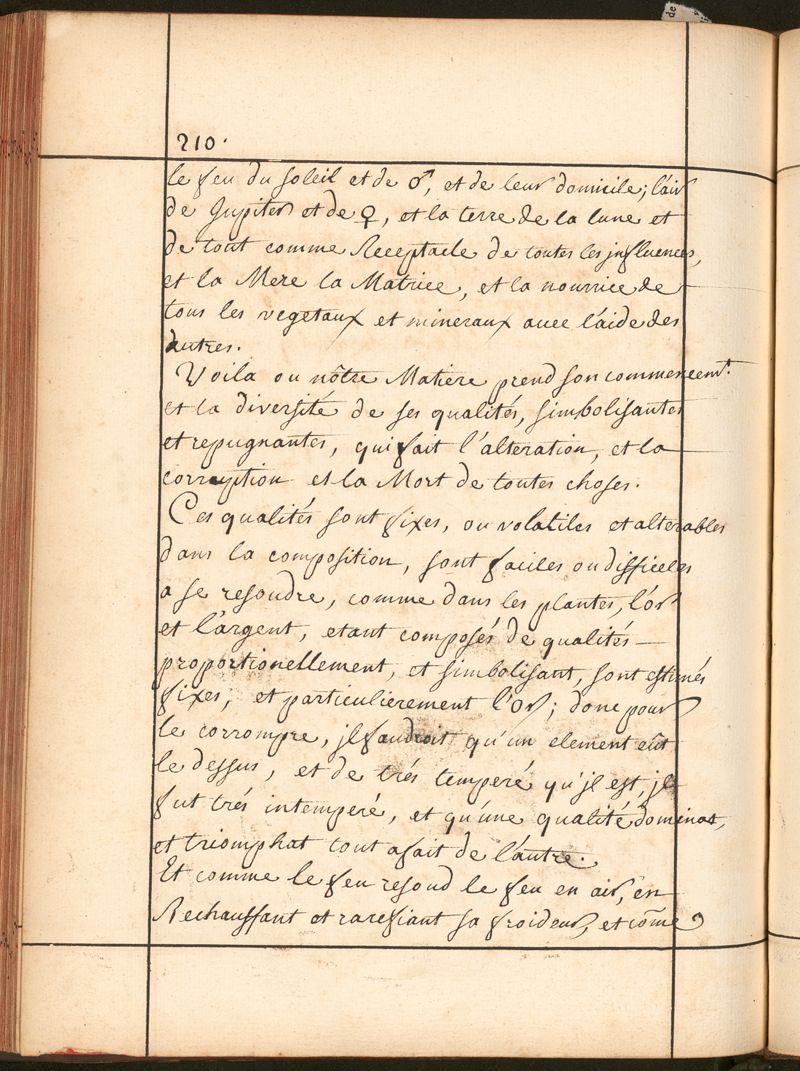 210.
le feu du soleil et de ♂, et de leur domicile; l'air
de Jupiter et de ♀, et la terre de la lune et
de tout comme Receptacle de toutes les jnfluences,
et la Mere la Matrice, et la nourrice de
tous les vegetaux et mineraux avec l'aide des
autres.
Voila ou nôtre Matiere prend son commencemt.
et la diversité de ses qualités, simbolisantes
et repugnantes, qui fait l'alteration, et la
corruption et la Mort de toutes choses.
Ces qualités sont fixes, ou volatiles et alterables
dans la composition, sont faciles ou difficiles
a se resoudre, comme dans les plantes, l'or
et l'argent, etant composés de qualités —
proportionellement, et simbolisant, sont estimés
fixes, et particulierement l'or; donc pour
le corrompre, jl faudroit qu'un element eût
le dessus, et de trés temperé qu'jl est, jl
fut trés intemperé, et qu'une qualité dominat,
et triomphat tout afait de l'autre.
Et comme le feu resoud le feu en air, en
Rechauffant et rarefiant sa froideur, et cõme